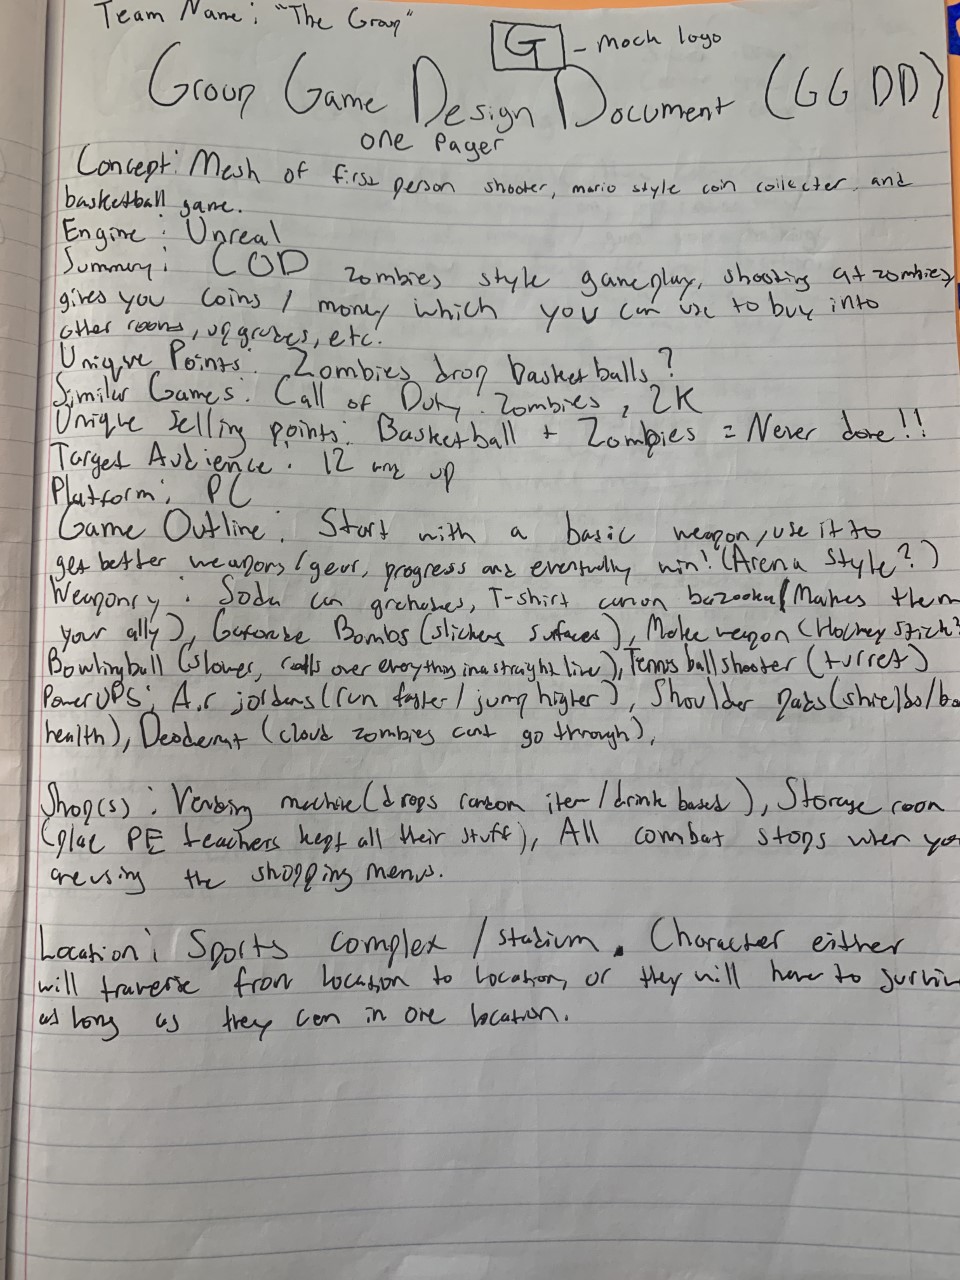 Team Name: "The Group"
G - mock logo
Group Game Design Document (GGDD)
one pager
Concept: Mesh of first person shooter, mario style coin collecter, and
basketball game.
Engine: Unreal
Summary: COD zombies style gameplay, shooting at zombies
gives you coins / money which you can use to buy into
other rooms, upgrades, etc.
Unique Points: Zombies drop basketballs?
Similar Games: Call of Duty: Zombies, 2K
Unique Selling points: Basketball + Zombies = Never done!!
Target Audience: 12 and up
Platform: PC
Game Outline: Start with a basic weapon, use it to
get better weapons/gear, progress and eventually win! (Arena Style?)
Weaponry: Soda can grenades, T-shirt canon bazooka (Makes them
your ally), Gatorade Bombs (slickens surfaces), Melee weapon (Hockey Stick?
Bowlingball (slower, rolls over everything in a straight line), Tennis ball shooter (turret)
PowerUPS: Air jordans (run faster / jump higher), Shoulder pads (shields/
health), Deoderant (cloud zombies cant go through),
Shop(s): Vending machine (drops random item/drink based), Storage room
(place PE teachers kept all their stuff), All combat stops when you
are using the shopping menus.
Location: Sports complex / stadium. Character either
will traverse from location to location, or they will have to
as long as they can in one location.